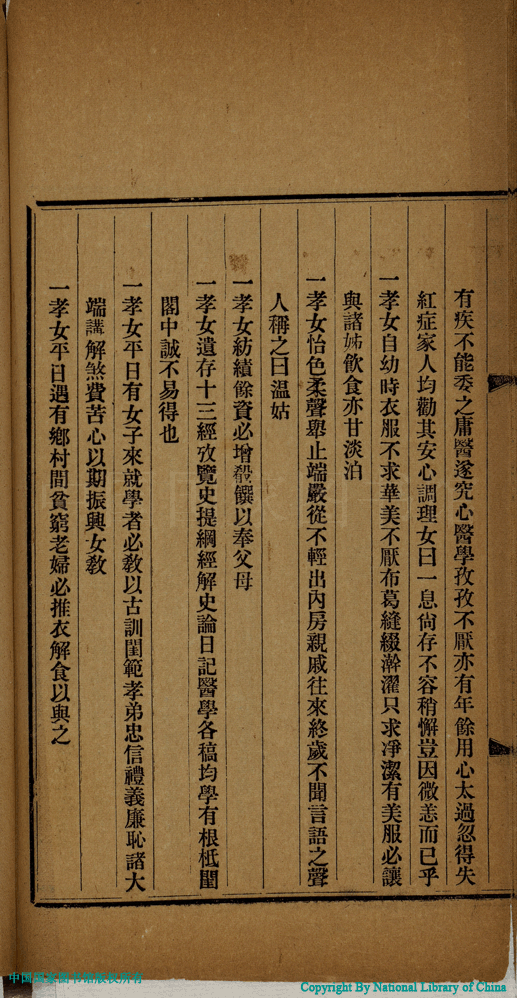 有疾不能委之庸醫遂究心醫學孜孜不厭亦有年餘用心太過忽得失
紅症家人均勸其安心調理女曰一息尙存不容稍懈豈因微恙而已乎
一孝女自幼時衣服不求華美不厭布葛縫綴澣濯只求凈潔有美服必讓
與諸姊飲食亦甘淡泊
一孝女怡色柔聲舉止端嚴從不輕出內房親戚往來終歲不聞言語之聲
人稱之曰温姑
一孝女紡績餘資必增殽饌以奉父母
一孝女遺存十三經攷覽史提綱經解史論日記醫學各稿均學有根柢閨
閣中誠不易得也
一孝女平日有女子來就學者必敎以古訓閨範孝弟忠信禮義廉恥諸大
端講解煞費苦心以期振興女敎
一孝女平日遇有鄉村間貧窮老婦必推衣解食以與之
中国国家图书馆版权所有
Copyright By National Library of China